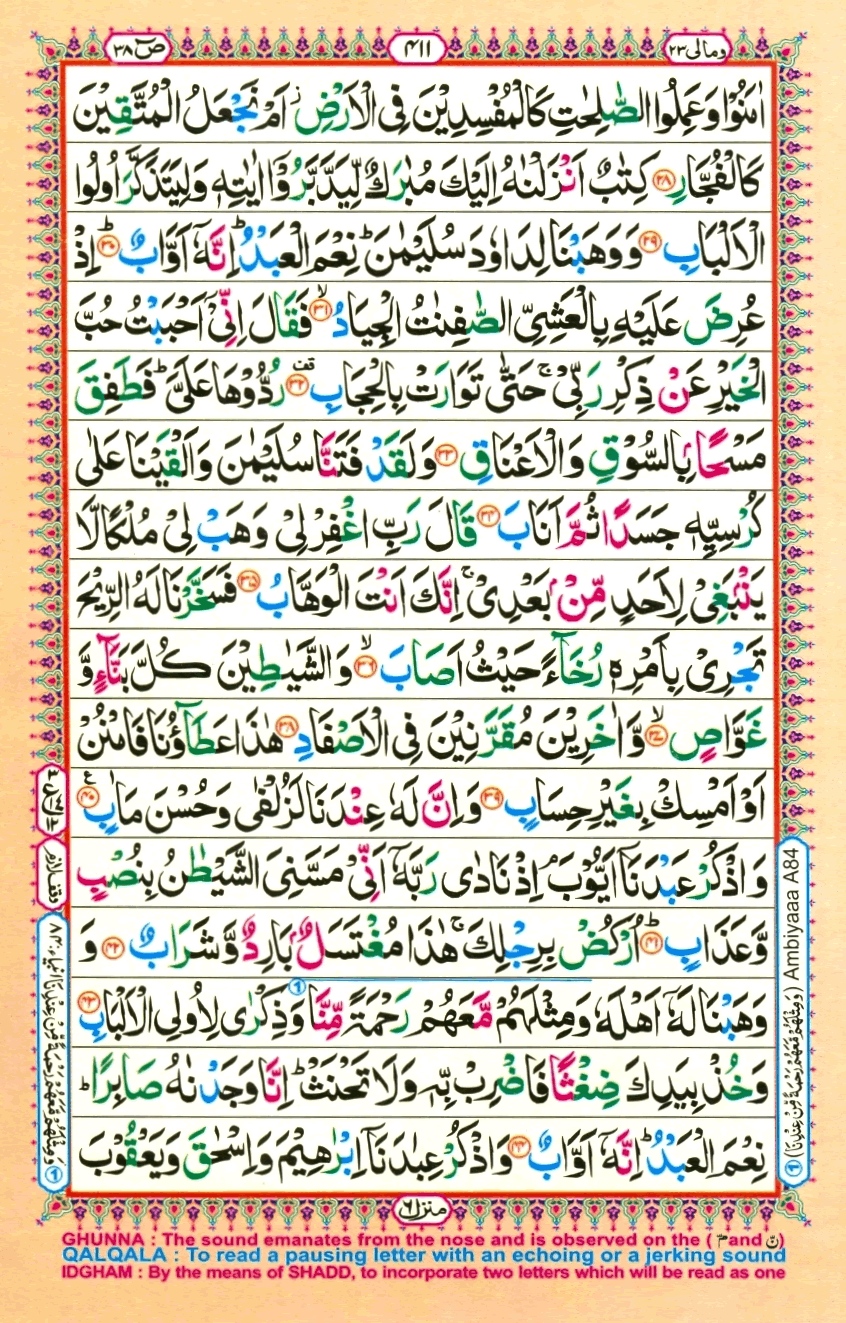 ومالی ٢٣
٤١١
صٓ ٣٨
اٰمَنُوۡا وَعَمِلُوا الصّٰلِحٰتِ كَالۡمُفۡسِدِيۡنَ فِى الۡاَرۡضِ ز اَمۡ نَجۡعَلُ الۡمُتَّقِيۡنَ
كَالۡفُجَّارِ ﴿۲۸﴾ كِتٰبٌ اَنۡزَلۡنٰهُ اِلَيۡكَ مُبٰرَكٌ لِّيَدَّبَّرُوۡۤا اٰيٰتِهٖ وَلِيَتَذَكَّرَ اُولُوا
الۡاَلۡبَابِ ﴿۲۹﴾ وَوَهَبۡنَا لِدَاوٗدَ سُلَيۡمٰنَ ؕ نِعۡمَ الۡعَبۡدُ ؕ اِنَّهٗۤ اَوَّابٌ ؕ ﴿۳۰﴾ اِذۡ
عُرِضَ عَلَيۡهِ بِالۡعَشِىِّ الصّٰفِنٰتُ الۡجِيَادُ ۙ ﴿۳۱﴾ فَقَالَ اِنِّىۡۤ اَحۡبَبۡتُ حُبَّ
الۡخَيۡرِ عَنۡ ذِكۡرِ رَبِّىۡ ۚ حَتّٰى تَوَارَتۡ بِالۡحِجَابِ ﴿۳۲﴾ قف رُدُّوۡهَا عَلَىَّ ؕ فَطَفِقَ
مَسۡحًۢا بِالسُّوۡقِ وَالۡاَعۡنَاقِ ﴿۳۳﴾ وَلَقَدۡ فَتَنَّا سُلَيۡمٰنَ وَاَلۡقَيۡنَا عَلٰى
كُرۡسِيِّهٖ جَسَدًا ثُمَّ اَنَابَ ﴿۳۴﴾ قَالَ رَبِّ اغۡفِرۡ لِىۡ وَهَبۡ لِىۡ مُلۡكًا لَّا
يَنۡۢبَغِىۡ لِاَحَدٍ مِّنۡۢ بَعۡدِىۡ ۚ اِنَّكَ اَنۡتَ الۡوَهَّابُ ﴿۳۵﴾ فَسَخَّرۡنَا لَهُ الرِّيۡحَ
تَجۡرِىۡ بِاَمۡرِهٖ رُخَآءً حَيۡثُ اَصَابَ ۙ ﴿۳۶﴾ وَالشَّيٰطِيۡنَ كُلَّ بَنَّآءٍ وَّ
غَوَّاصٍ ۙ ﴿۳۷﴾ وَّاٰخَرِيۡنَ مُقَرَّنِيۡنَ فِى الۡاَصۡفَادِ ﴿۳۸﴾ هٰذَا عَطَآؤُنَا فَامۡنُنۡ
اَوۡ اَمۡسِكۡ بِغَيۡرِ حِسَابٍ ﴿۳۹﴾ وَاِنَّ لَهٗ عِنۡدَنَا لَزُلۡفٰى وَحُسۡنَ مَاٰبٍ ﴿۴۰﴾ ع
وَاذۡكُرۡ عَبۡدَنَاۤ اَيُّوۡبَ ۘ اِذۡ نَادٰى رَبَّهٗۤ اَنِّىۡ مَسَّنِىَ الشَّيۡطٰنُ بِنُصۡبٍ
وَّعَذَابٍ ؕ ﴿۴۱﴾ اُرۡكُضۡ بِرِجۡلِكَ ۚ هٰذَا مُغۡتَسَلٌۢ بَارِدٌ وَّشَرَابٌ ﴿۴۲﴾ وَ
وَهَبۡنَا لَهٗۤ اَهۡلَهٗ وَمِثۡلَهُمۡ مَّعَهُمۡ رَحۡمَةً مِّنَّا وَذِكۡرٰى لِاُولِى الۡاَلۡبَابِ ﴿۴۳﴾
وَخُذۡ بِيَدِكَ ضِغۡثًا فَاضۡرِبْ بِّهٖ وَلَا تَحۡنَثۡ ؕ اِنَّا وَجَدۡنٰهُ صَابِرًا ؕ
نِعۡمَ الۡعَبۡدُ ؕ اِنَّهٗۤ اَوَّابٌ ﴿۴۴﴾ وَاذۡكُرۡ عِبٰدَنَاۤ اِبۡرٰهِيۡمَ وَاِسۡحٰقَ وَيَعۡقُوۡبَ
وقف لازم
① وَمِثۡلَهُمۡ مَّعَهُمۡ رَحۡمَةً مِّنۡ عِنۡدِنَا انبیاء: ٨٤
① (وَمِثۡلَهُمۡ مَّعَهُمۡ رَحۡمَةً مِّنۡ عِنۡدِنَا) Ambiyaaa A84
منزل ٦
GHUNNA : The sound emanates from the nose and is observed on the ( مّ and نّ)
QALQALA : To read a pausing letter with an echoing or a jerking sound
IDGHAM : By the means of SHADD, to incorporate two letters which will be read as one